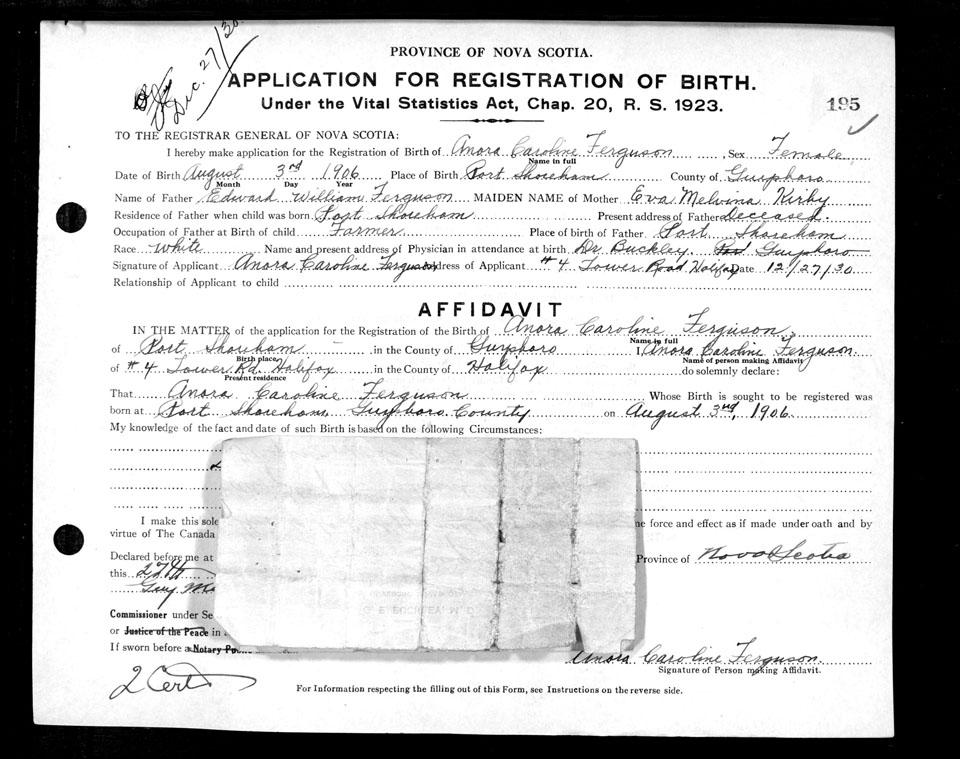 Dec. 27/30
PROVINCE OF NOVA SCOTIA.
APPLICATION FOR REGISTRATION OF BIRTH.
Under the Vital Statistics Act, Chap. 20, R. S. 1923.
195
TO THE REGISTRAR GENERAL OF NOVA SCOTIA:
I hereby make application for the Registration of Birth of Anora Caroline Ferguson, Sex Female
Name in full
Date of Birth August 3rd 1906 Place of Birth Port Shoreham County of Guysboro
Month Day Year
Name of Father Edward William Ferguson MAIDEN NAME of Mother Eva Melvina Kirby
Residence of Father when child was born Port Shoreham Present address of Father Deceased.
Occupation of Father at Birth of child Farmer Place of birth of Father Port Shoreham
Race White Name and present address of Physician in attendance at birth Dr Buckley. Guysboro
Signature of Applicant Anora Caroline Ferguson Address of Applicant #4 Tower Road Halifax Date 12/27/30
Relationship of Applicant to child
AFFIDAVIT
IN THE MATTER of the application for the Registration of the Birth of Anora Caroline Ferguson
Name in full
of Port Shoreham in the County of Guysboro I, Anora Caroline Ferguson.
Birth place Name of person making Affidavity
of #4 Tower Rd. Halifax in the County of Halifax do solemnly declare:
Present residence
That Anora Caroline Ferguson Whose Birth is sought to be registered was
born at Port Shoreham, Guysboro County on August 3rd, 1906
My knowledge of the fact and date of such Birth is based on the following Circumstances:
I make this sole
he force and effect as if made under oath and by
virtue of The Canada
Declared before me at
Province of Nova Scotia
this 27th
Guy Ma
Commissioner under Se
or Justice of the Peace in
If sworn before a Notary Pub
Anora Caroline Ferguson.
Signature of Person making Affidavit.
2 Cert
For Information respecting the filling out of this Form, see Instructions on the reverse side.